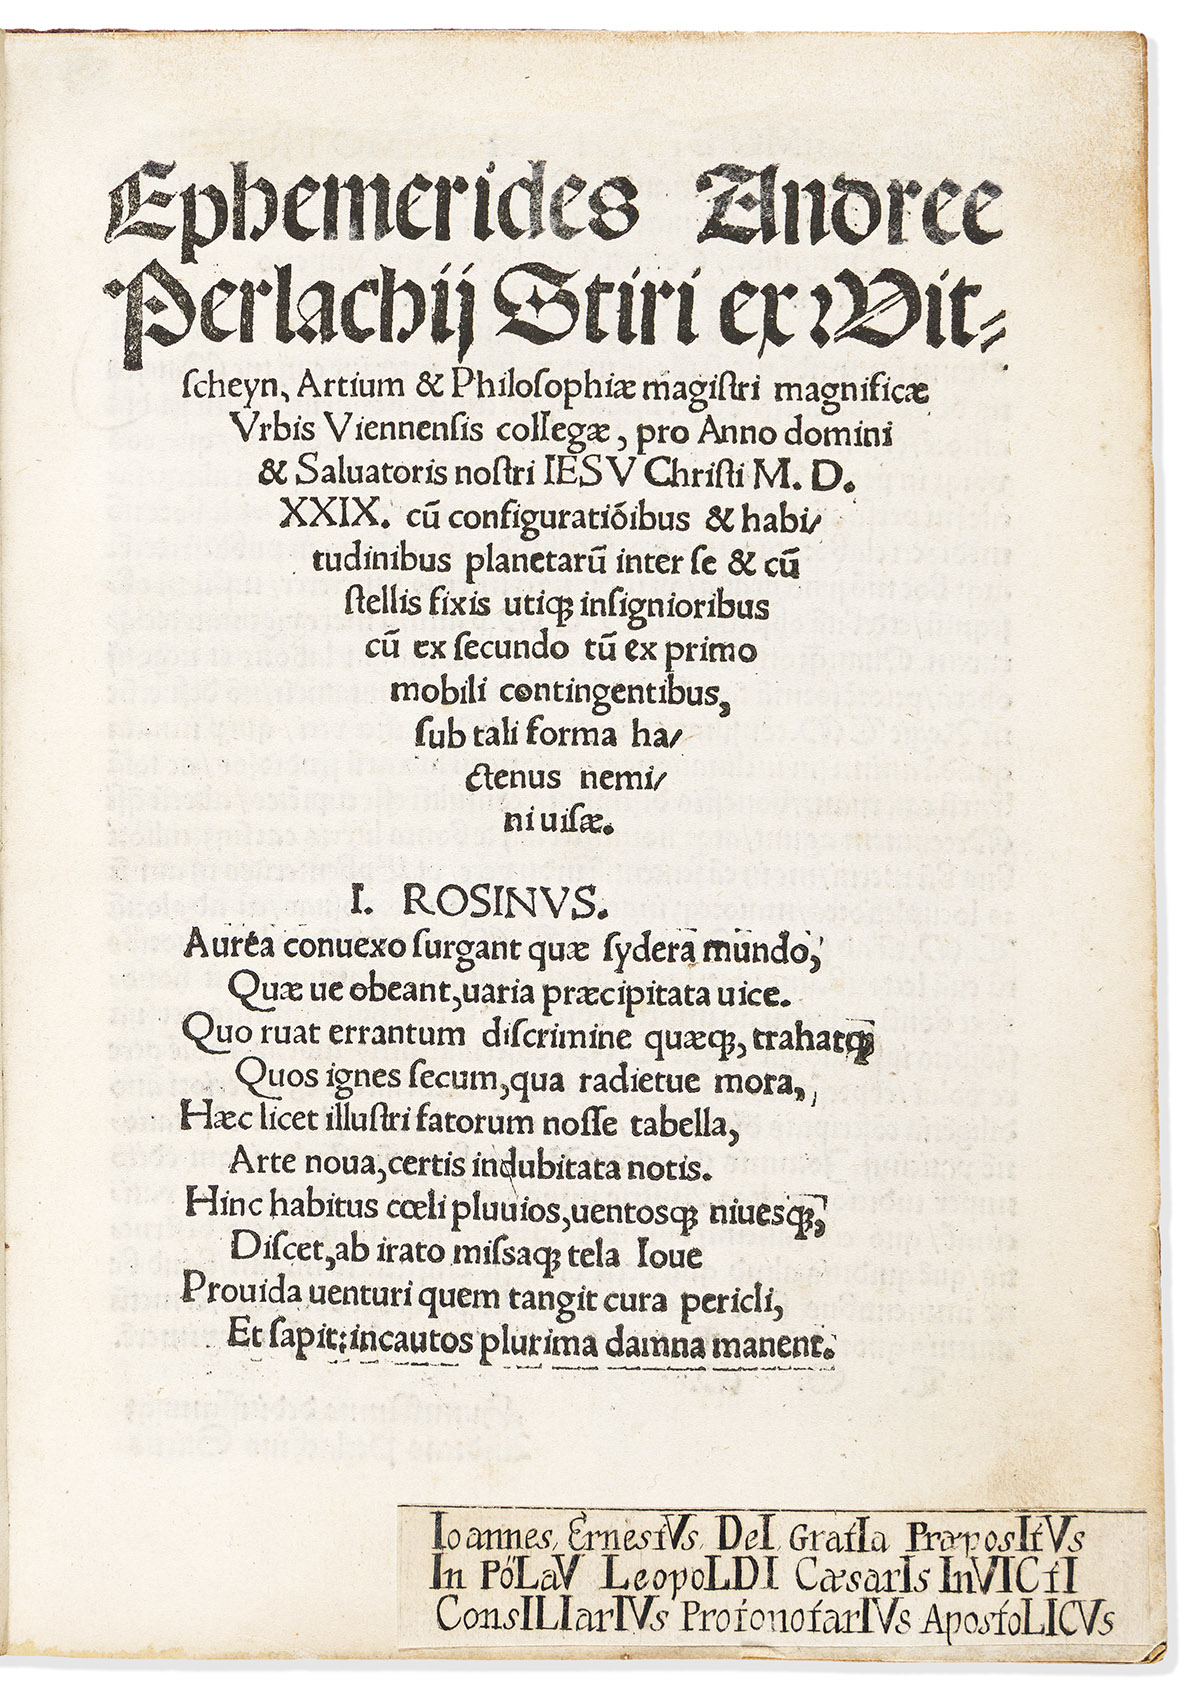 Ephemerides Andree
Perlachij Stiri ex Wit⸗
ſcheyn, Artium & Philoſophiæ magiſtri magnificæ
Vrbis Viennenſis collegæ, pro Anno domini
& Saluatoris noſtri IESV Chriſti M. D.
XXIX. cū configuratiōibus & habi/
tudinibus planetarū inter ſe & cū
ſtellis fixis utiqꝫ inſignioribus
cū ex ſecundo tū ex primo
mobili contingentibus,
ſub tali forma ha/
ctenus nemi/
ni uiſæ.
I. ROSINVS.
Aurea conuexo ſurgant quæ ſydera mundo,
Quæ ue obeant, uaria præcipitata uice.
Quo ruat errantum diſcrimine quæqꝫ, trahatqꝫ
Quos ignes ſecum, qua radietue mora,
Hæc licet illuſtri fatorum noſſe tabella,
Arte noua, certis indubitata notis.
Hinc habitus cœli pluuios, uentosqꝫ niuesqꝫ,
Diſcet, ab irato miſſaqꝫ tela Ioue
Prouida uenturi quem tangit cura pericli,
Et ſapit: incautos plurima damna manent.
Ioannes, ErnestVs, DeI, GratIa PræposItVs
In PöLaV LeopoLDI CæsarIs InVICtI
ConsILIarIVs ProtonotarIVs ApostoLICVs